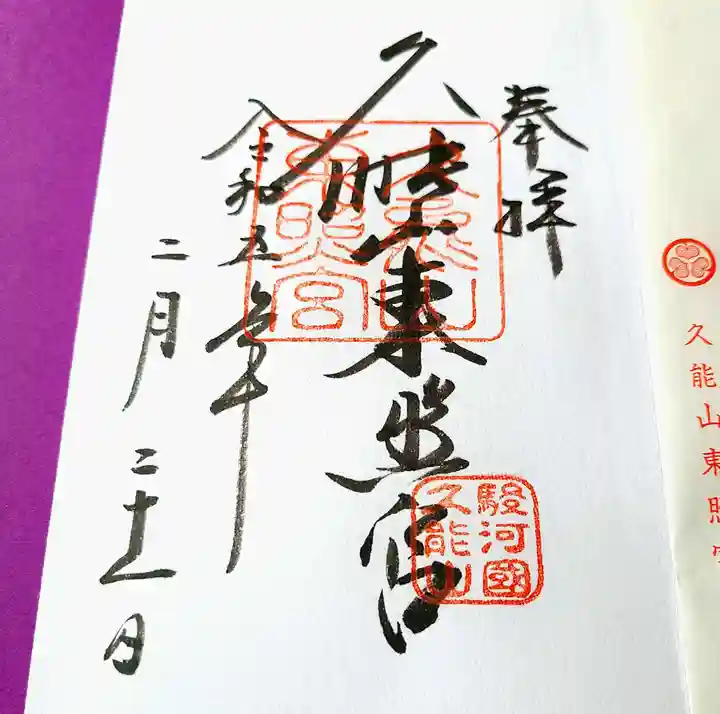 久能山東照宮
奉拝
久能山東照宮
久能山
東照宮
駿河國
久能山
令和五年
二月二十一日